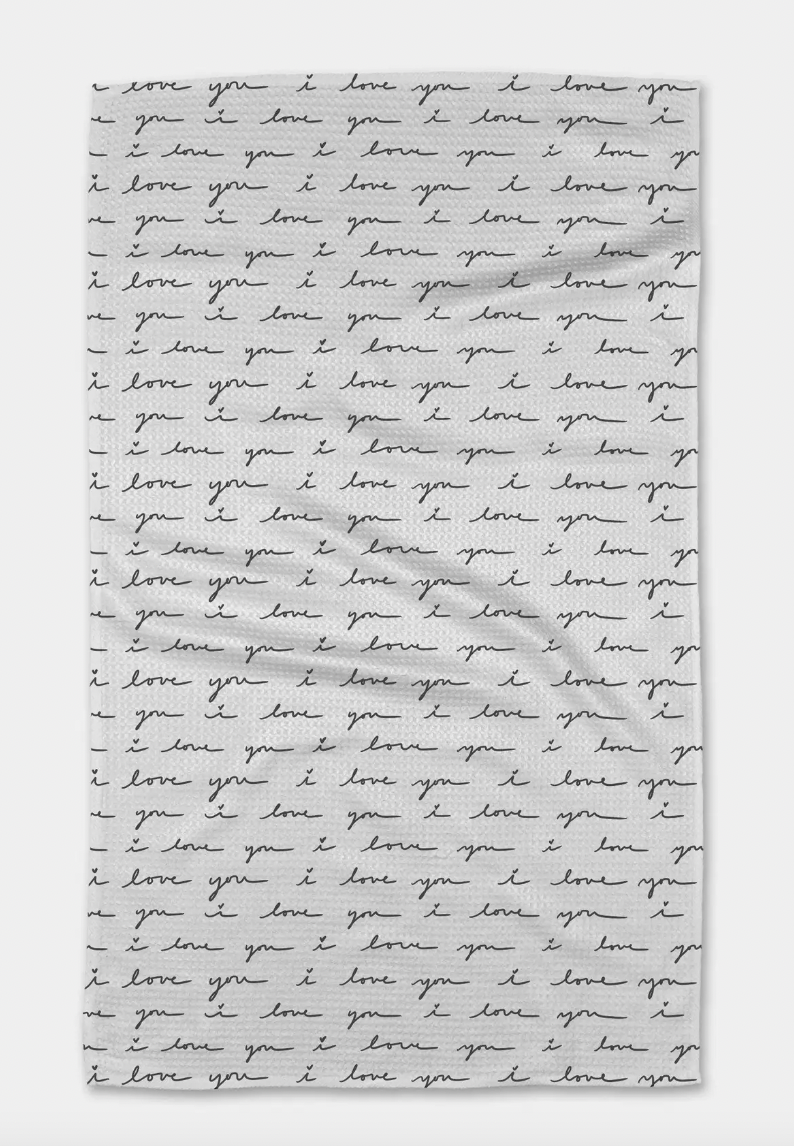 i love you i love you i love you
e you i love you i love you i
i love you i love you i love yo
i love you i love you i love you
ve you i love you i love you i
i love you i love you i love yo
i love you i love you i love you
ve you i love you i love you i
i love you i love you i love yo
i love you i love you i love you
e you i love you i love you i
i love you i love you i love yo
i love you i love you i love you
e you i love you i love you i
i love you i love you i love yo
i love you i love you i love you
e you i love you i love you i
i love you i love you i love yo
i love you i love you i love you
e you i love you i love you i
i love you i love you i love you
i love you i love you i love you
e you i love you i love you i
i love you i love you i love you
i love you i love you i love you
ve you i love you i love you i
i love you i love you i love you
i love you i love you i love you
ve you i love you i love you i
i love you i love you i love you
i love you i love you i love you